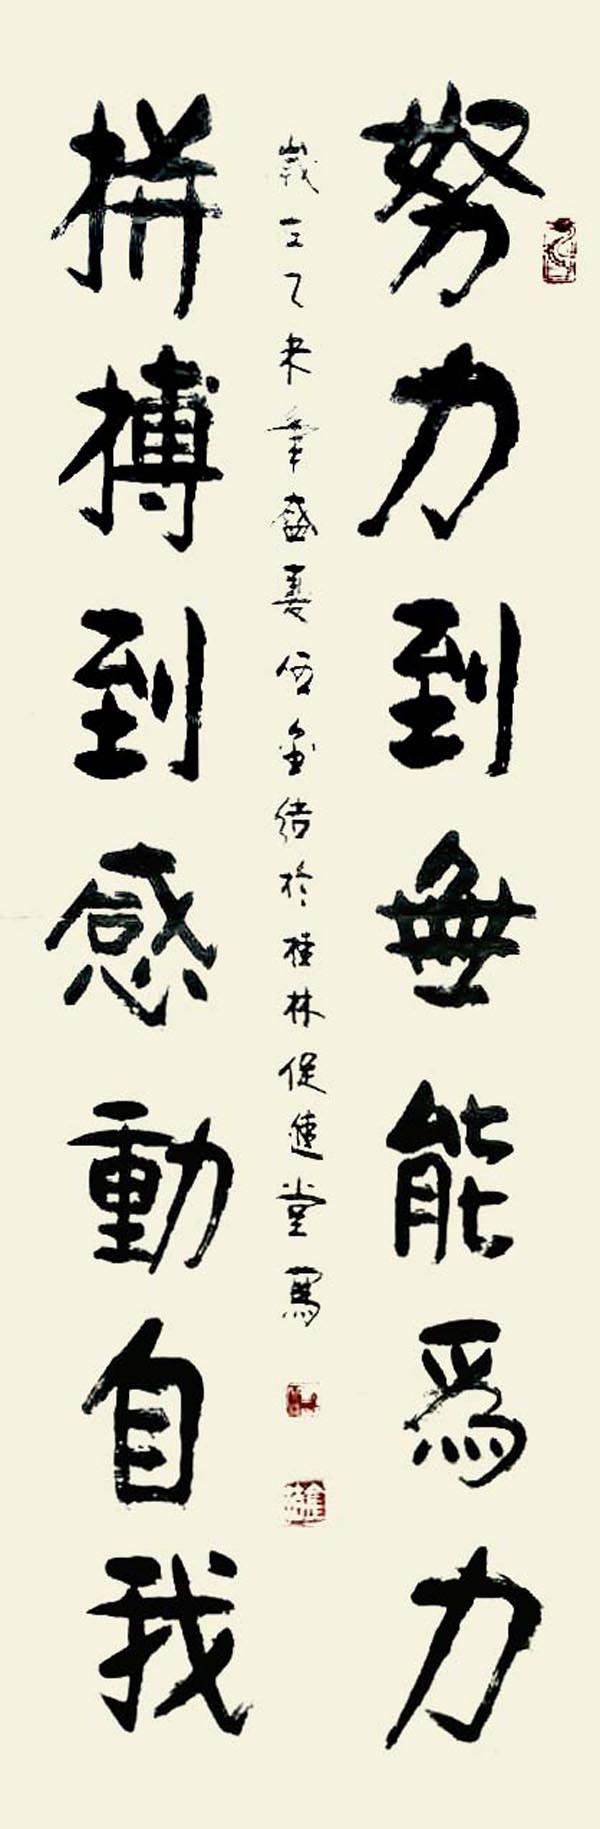 努力到無能為力
拼搏到感動自我
歲在乙未年盛夏伍金结於桂林促進堂寫